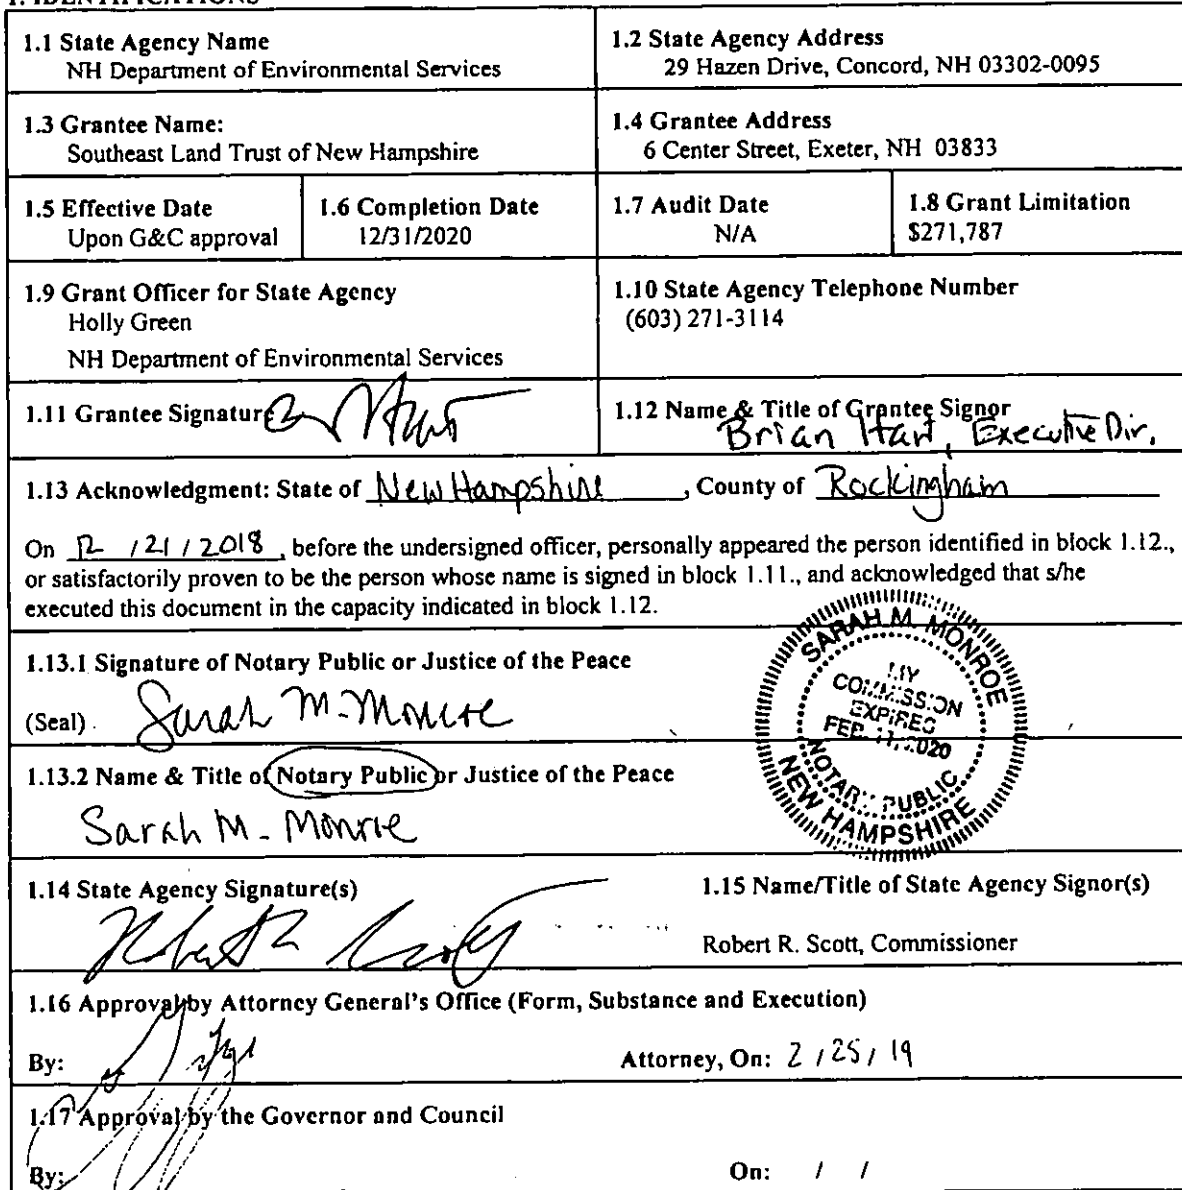 1.1 State Agency Name
NH Department of Environmental Services
1.2 State Agency Address
29 Hazen Drive, Concord, NH 03302-0095
1.3 Grantee Name:
Southeast Land Trust of New Hampshire
1.4 Grantee Address
6 Center Street, Exeter, NH 03833
1.5 Effective Date
Upon G&C approval
1.6 Completion Date
12/31/2020
1.7 Audit Date
N/A
1.8 Grant Limitation
$271,787
1.9 Grant Officer for State Agency
Holly Green
NH Department of Environmental Services
1.10 State Agency Telephone Number
(603) 271-3114
1.11 Grantee Signature
1.12 Name & Title of Grantee Signor
Brian Hart, Executive Dir.
1.13 Acknowledgment: State of New Hampshire, County of Rockingham
On 12 / 21 / 2018, before the undersigned officer, personally appeared the person identified in block 1.12.,
or satisfactorily proven to be the person whose name is signed in block 1.11., and acknowledged that s/he
executed this document in the capacity indicated in block 1.12.
1.13.1 Signature of Notary Public or Justice of the Peace
(Seal) Sarah M. Monroe
SARAH M. MONROE
MY
COMMISSION
EXPIRES
FEB. 11, 2020
NOTARY PUBLIC
NEW HAMPSHIRE
1.13.2 Name & Title of Notary Public or Justice of the Peace
Sarah M. Monroe
1.14 State Agency Signature(s)
1.15 Name/Title of State Agency Signor(s)
Robert R. Scott, Commissioner
1.16 Approval by Attorney General's Office (Form, Substance and Execution)
By:
Attorney, On: 2 / 25 / 19
1.17 Approval by the Governor and Council
By:
On: / /